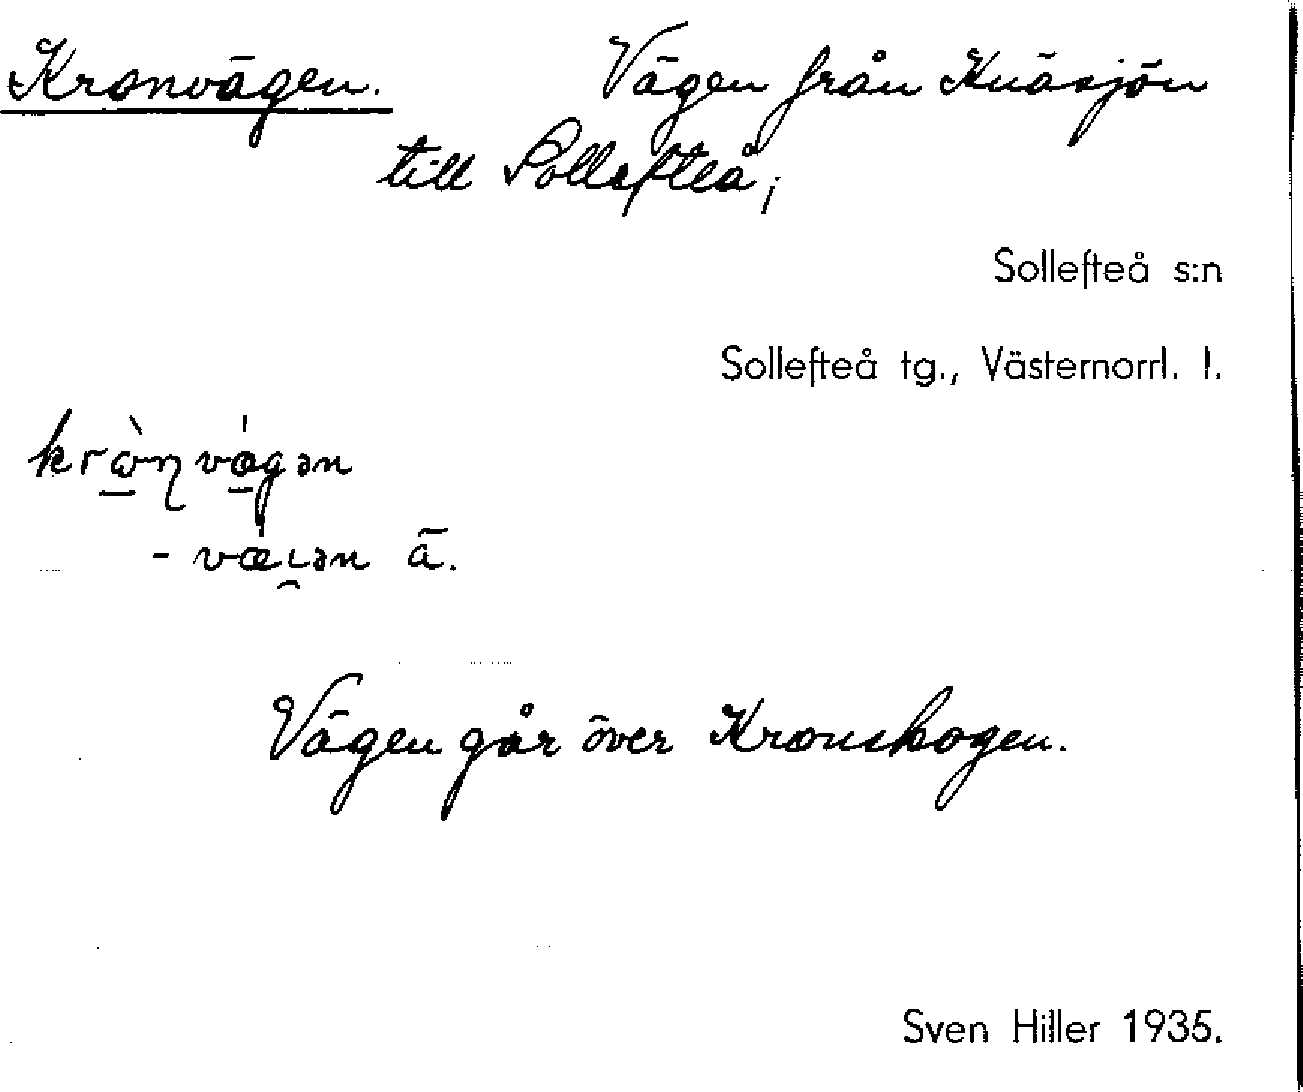 Kronvägen. Vägen från Knäsjön
till Sollefteå;
Sollefteå s:n
Sollefteå tg., Västernorrl. l.
krὼ̱ŋvǽ̱gən
- vǽ̯ɩən ä.
Vägen går över Kronskogen.
Sven Hiller 1935.